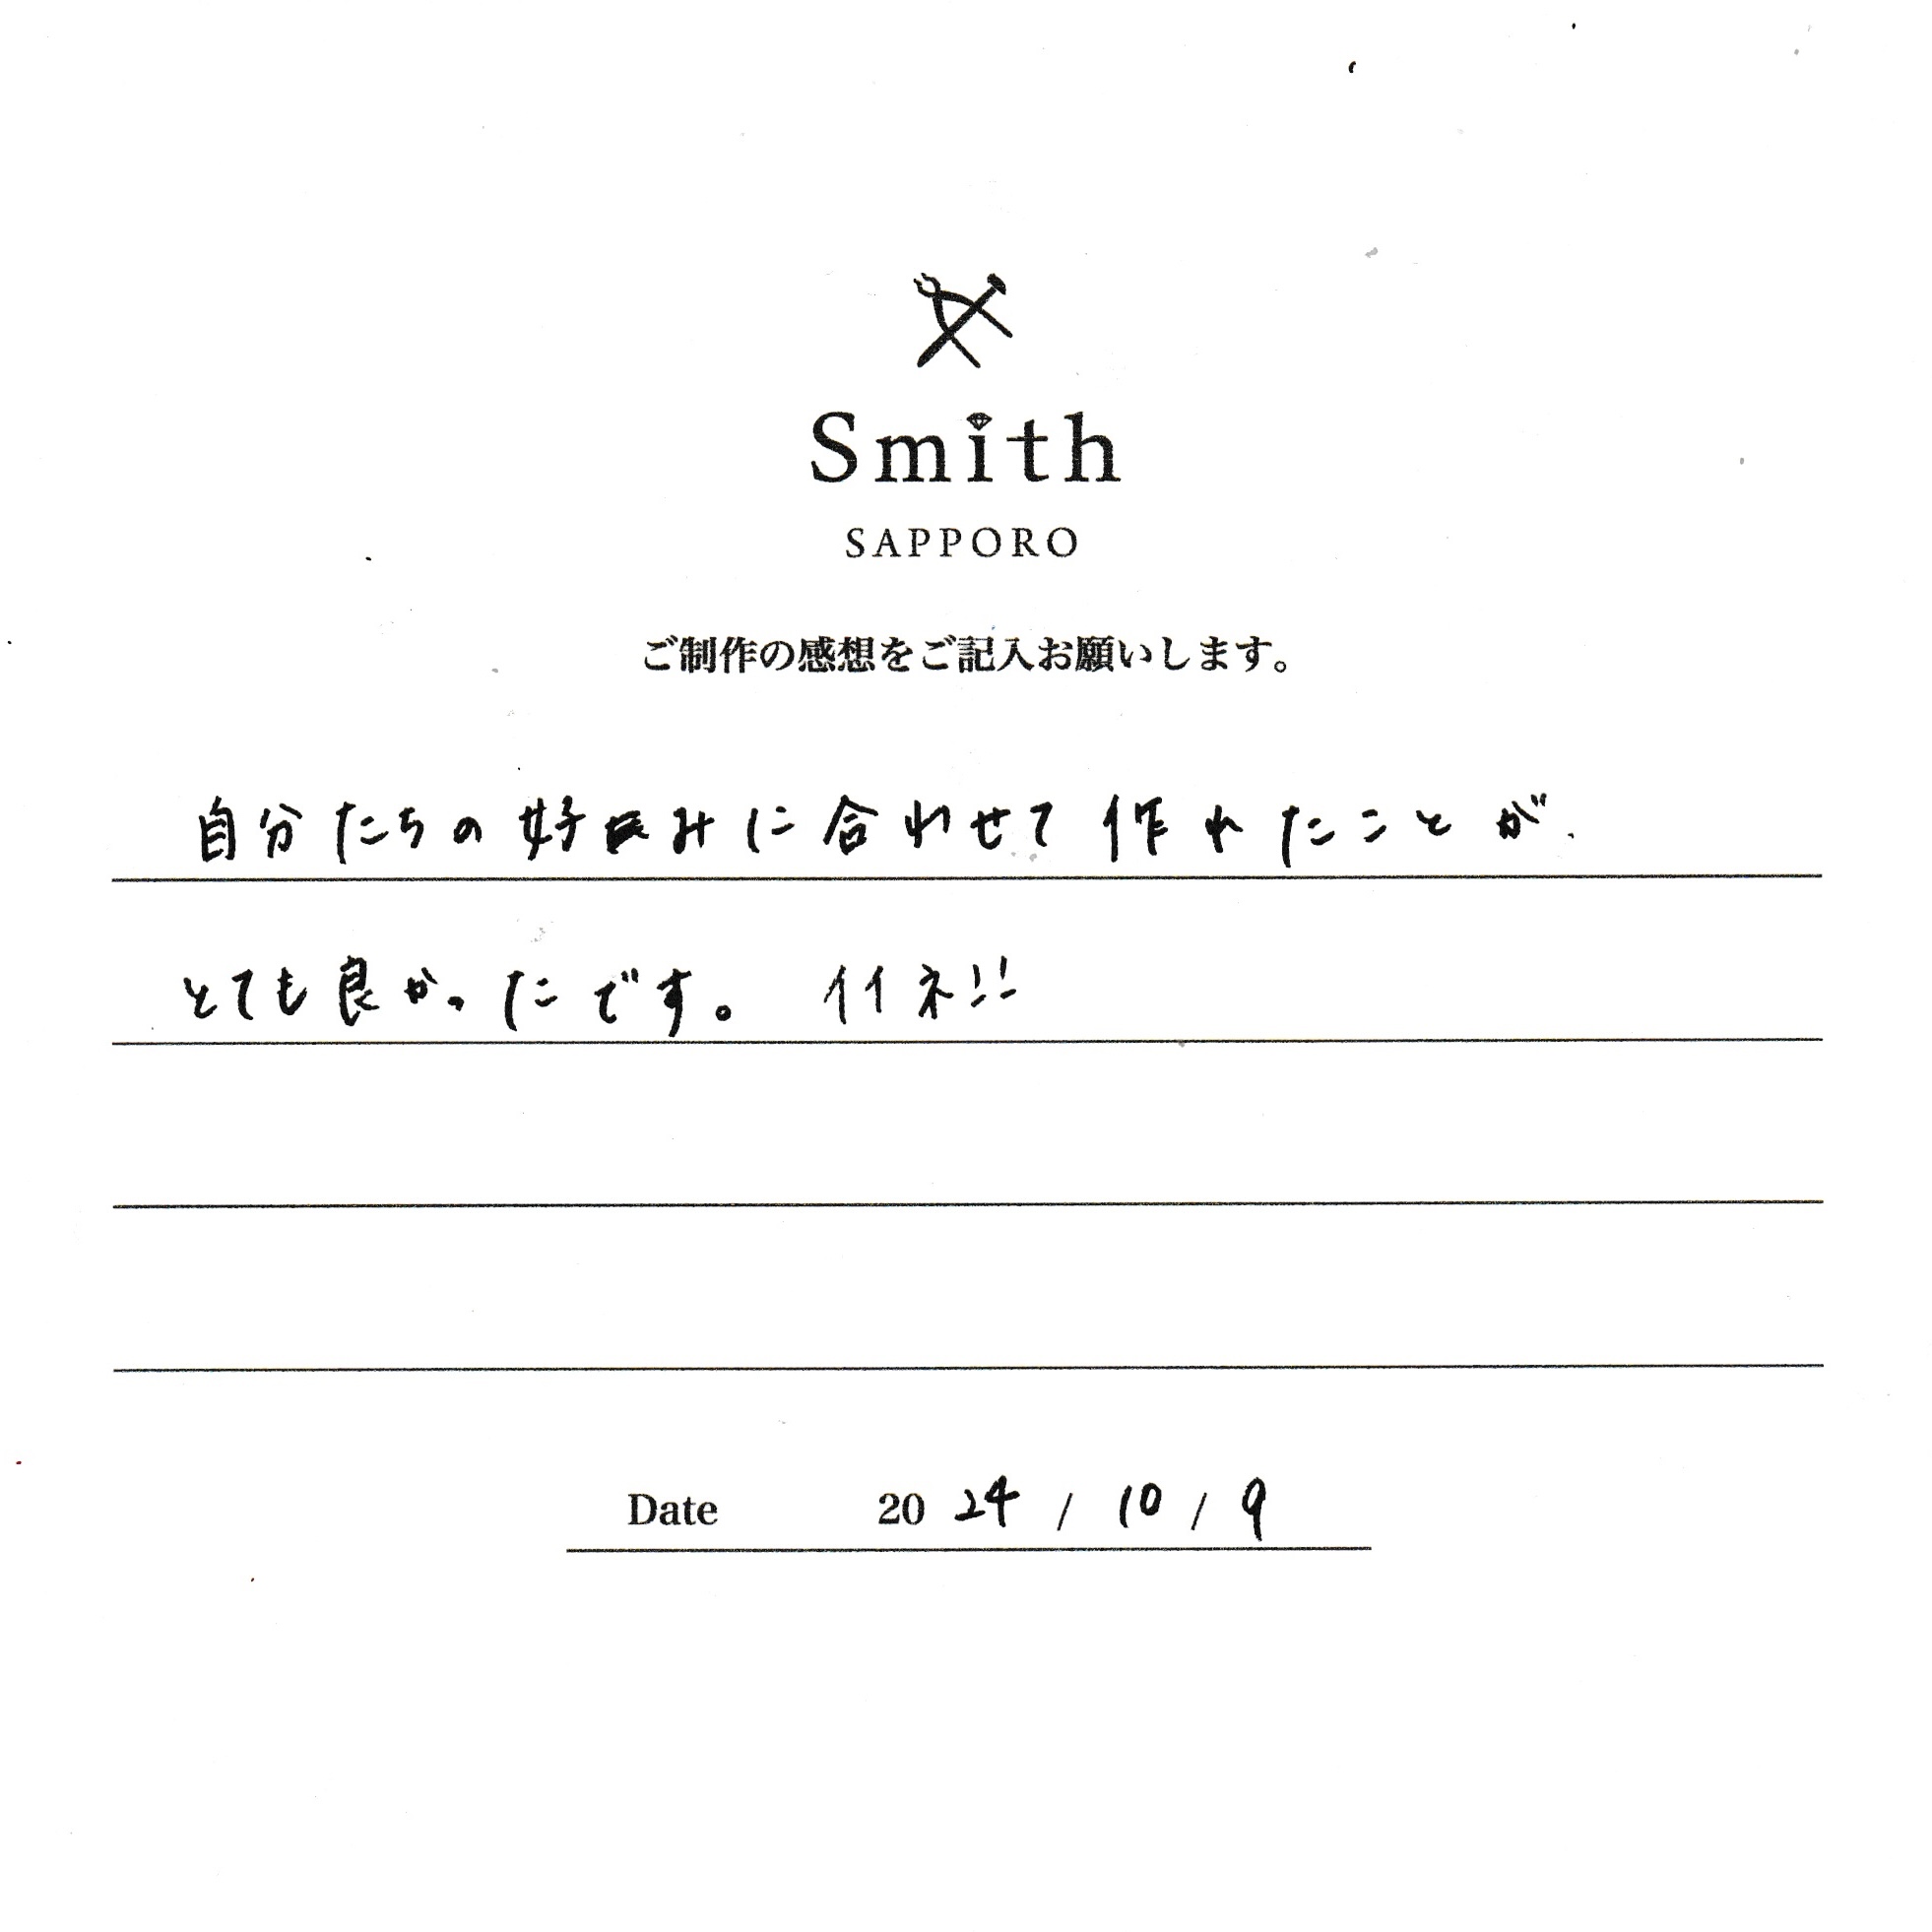 Smith
SAPPORO
ご制作の感想をご記入お願いします。
自分たちの好みに合わせて作れたことが、
とても良かったです。 イイネ!!
Date 2024 / 10 / 9